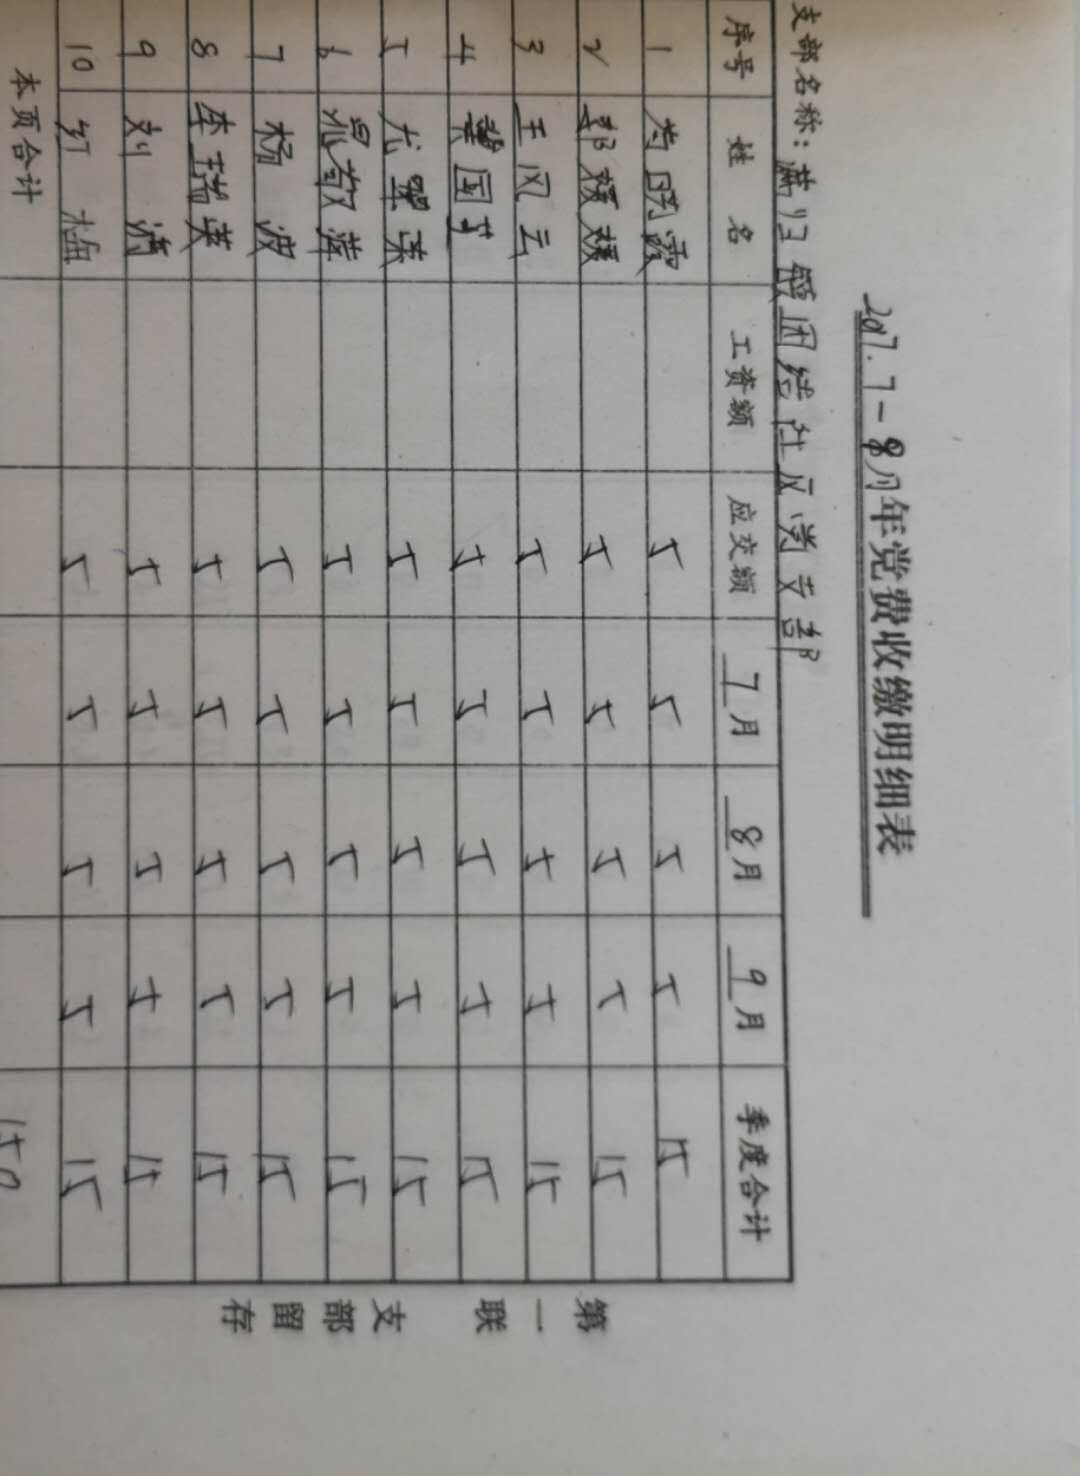 2017.7-8月年党费收缴明细表
支部名称：满归镇团结社区党支部
序号 姓名 工资额 应交额 7月 8月 9月 季度合计
1 5 5 5 5 15
2 郭颖颖 5 5 5 5 15
3 王凤云 5 5 5 5 15
4 国芳 5 5 5 5 15
5 尤翠英 5 5 5 5 15
6 晁敬萍 5 5 5 5 15
7 杨波 5 5 5 5 15
8 李瑞英 5 5 5 5 15
9 刘涛 5 5 5 5 15
10 红梅 5 5 5 5 15
本页合计 150
第一联 支部留存